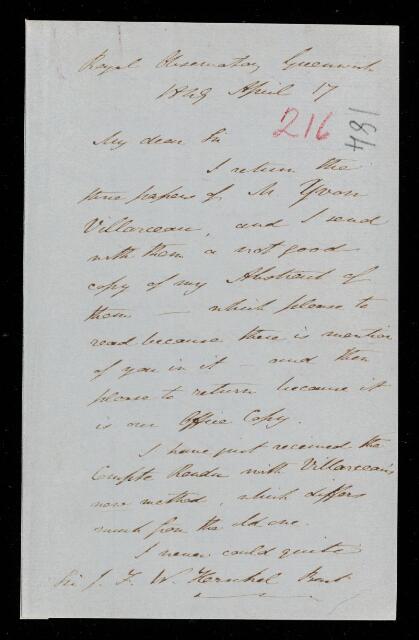 Royal Observatory Greenwich
1849 April 17
216
184
My dear Sir
I return the
three papers of M Yvon
Villarceau, and I send
with them a not good
copy of my Abstract of
them — which please to
read because there is mention
of you in it — and then
please to return because it
is our Office Copy.
I have just received the
Compte Rendu with Villarceau's
new method, which differs
much from the old one.
I never could quite
Sir J. F. W. Herschel Bart